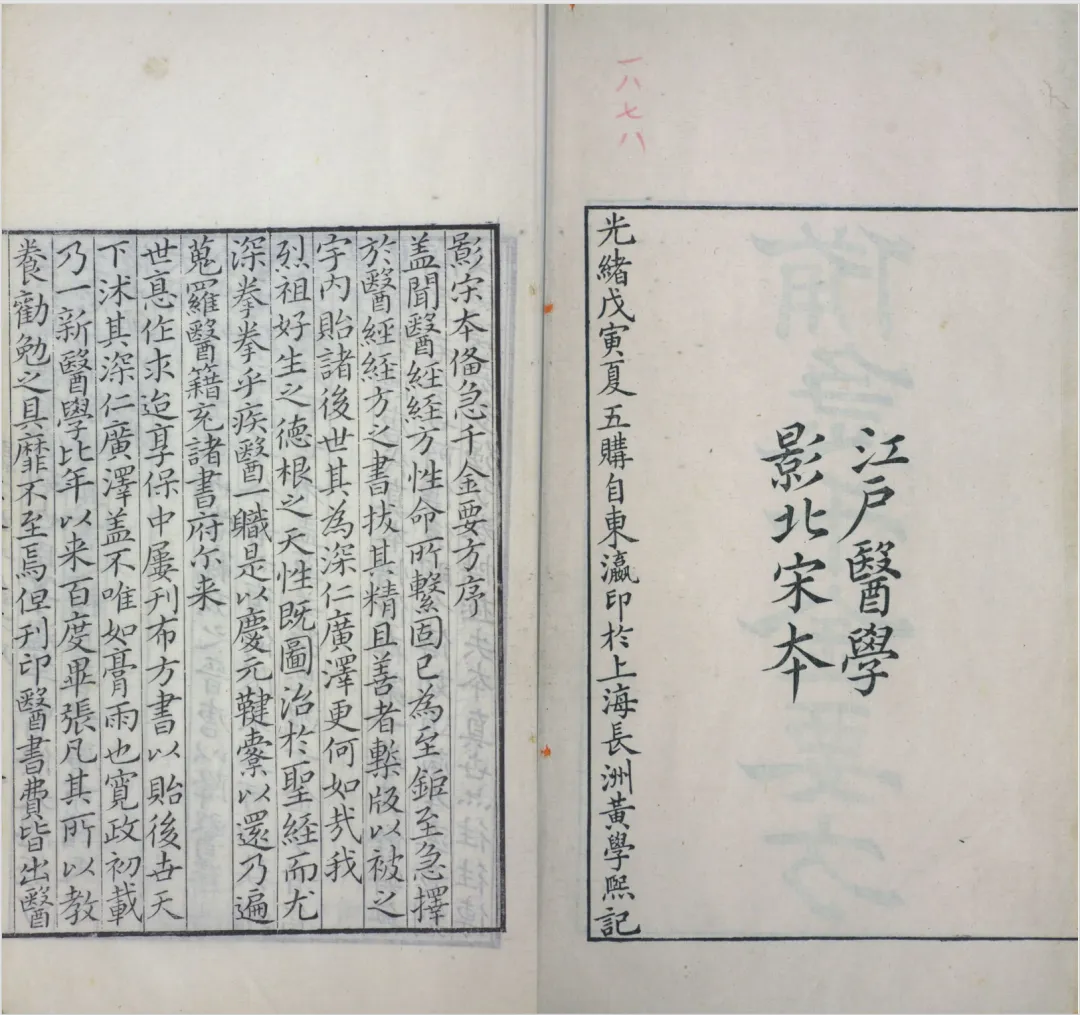 一八七八
江戶醫學
影北宋本
光緒戊寅夏五購自東瀛印於上海長洲黃學熙記
影宋本備急千金要方序
蓋聞醫經經方性命所繫固已為至鉅至急擇
於醫經經方之書拔其精且善者槧版以被之
宇內貽諸後世其為深仁廣澤更何如哉我
烈祖好生之德根之天性既圖治於聖經而尤
深拳拳乎疾醫一職是以慶元鞬櫜以還乃遍
蒐羅醫籍充諸書府尔来
世悳作求迨享保中屢刊布方書以貽後世天
下沐其深仁廣澤蓋不唯如膏雨也寬政初載
乃一新醫學比年以来百度畢張凡其所以教
養勸勉之具靡不至焉但刊印醫書費皆出醫